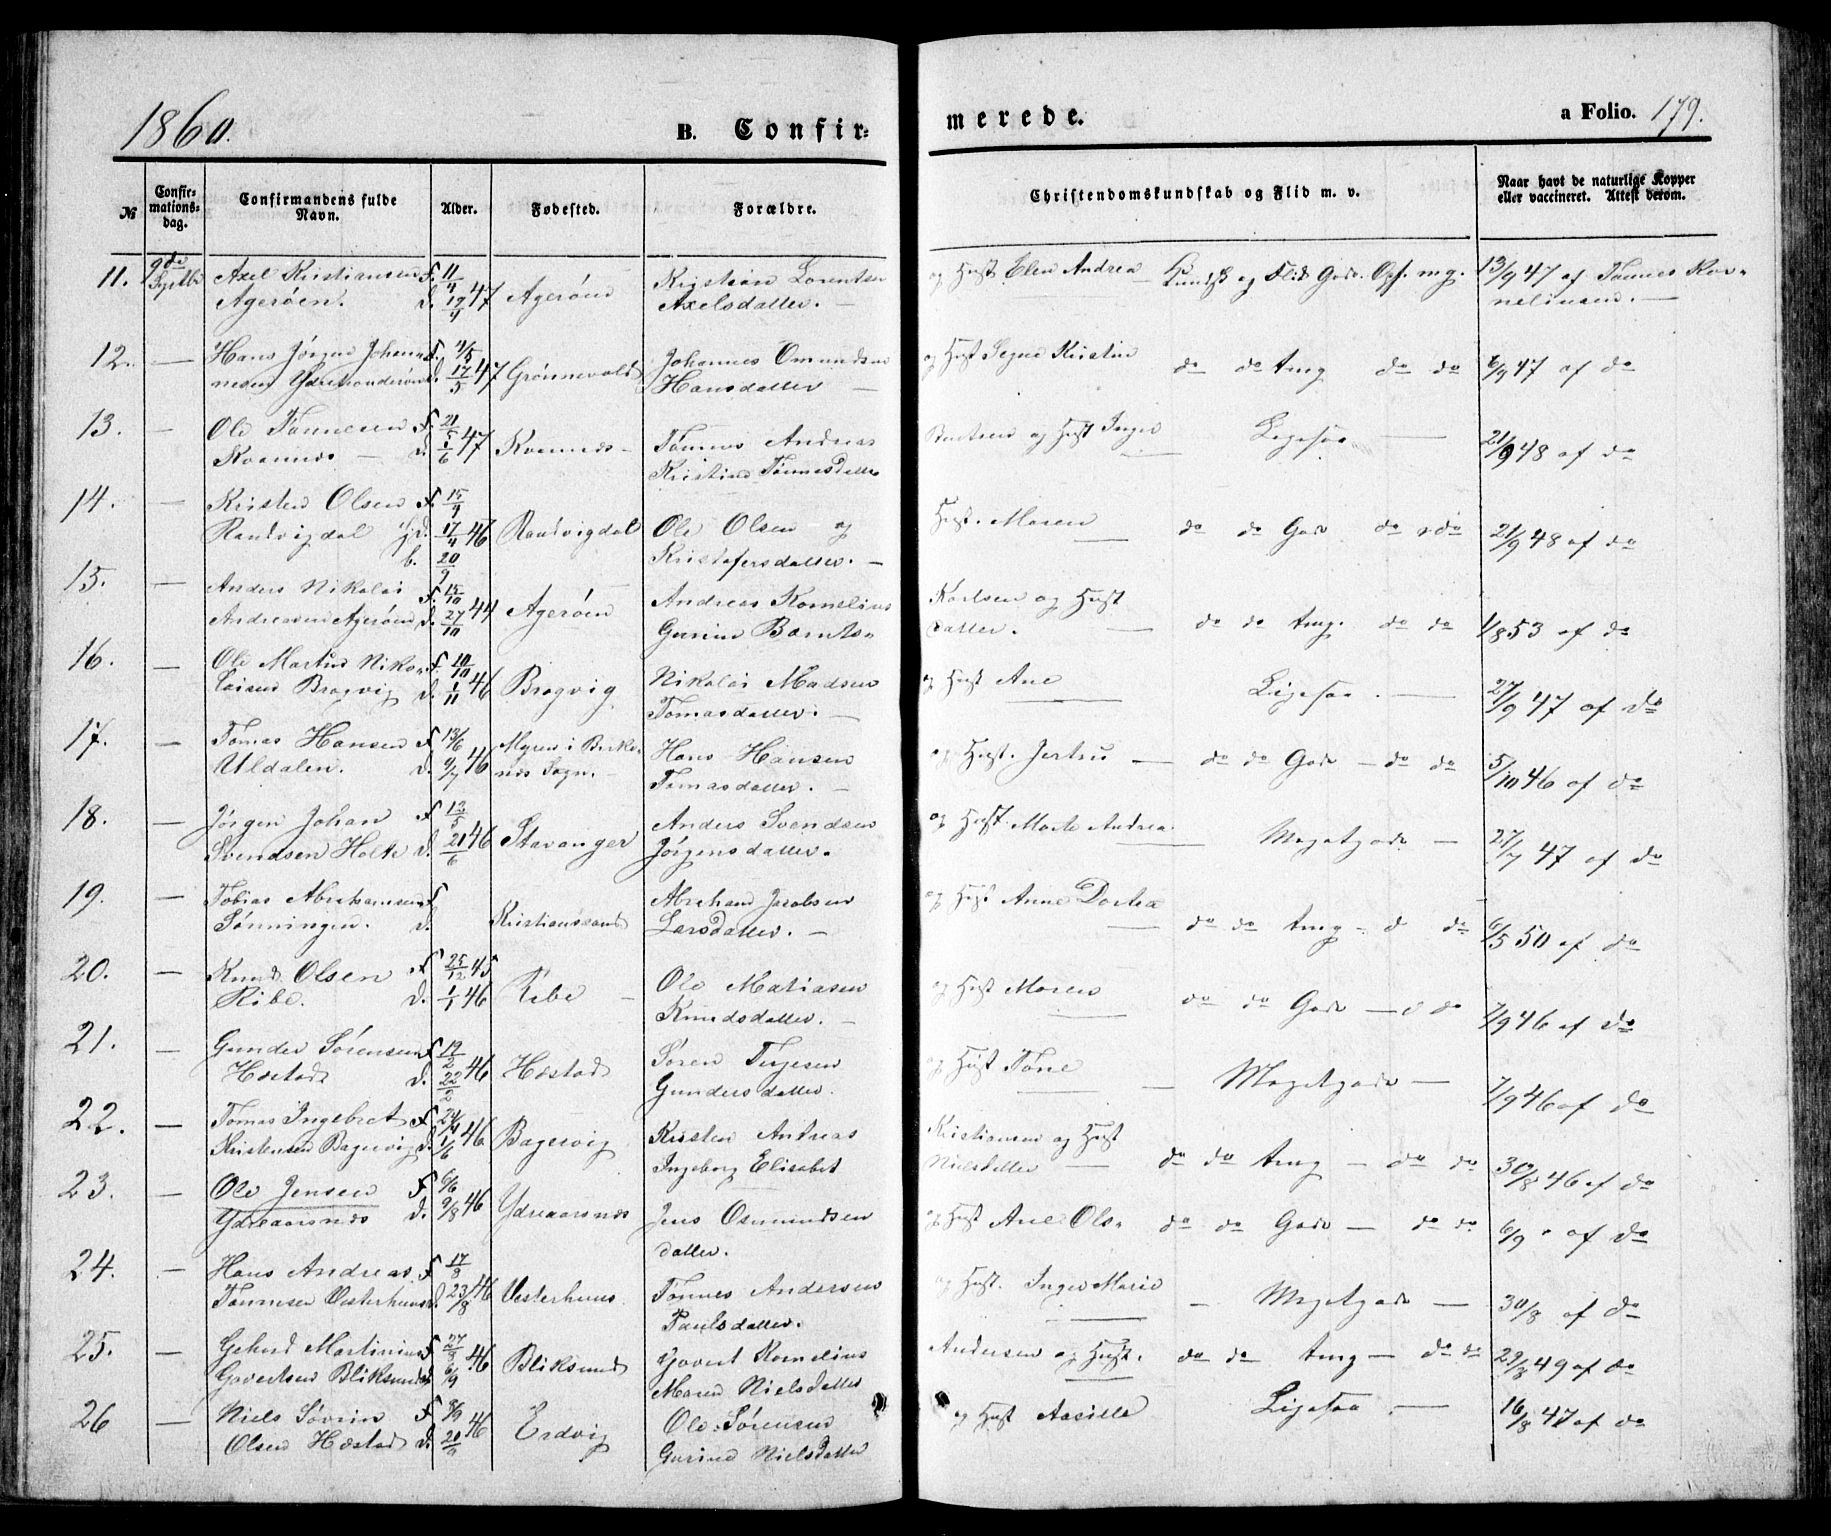 1860.
B. Confir-
merede.
a Folio. 179.
№
Confir-
mations-
dag.
Confirmandens fulde
Navn.
Alder.
Fødested.
Forældre.
Christendomskundskab og Flid m. v.
Naar havt de naturlige Kopper
eller vaccineret. Attest derom.
11. Axel Kristiansen F. 11/4 Kristian Lorentsen og Hust. Elen Andrea Kundsk og Flid Gode. Opf. mg. 13/9 47 af Tønnes Kor-
Agerøen. d. 12/4 47 Agerøen Axelsdatter. neliusen.
12. — Hans Jørgen Johan- F. 4/5 Johannes Omundsen og Hust Segne Kristine do do tmg do do 6/9 47 af do
nesen d. 17/5 47 Grønnevold Hansdatter
13. — Ole Tønnesen F. 21/5 Tønnes Andreas Berntsen og Hust Inger Ligesaa 21/9 48 af do
Kvannes d. 1/6 47 Kvannes Kristine Tønnesdatter
14. — Kristen Olsen F. 15/4 Ole Olsen og Hust. Maren do do Gode do do 21/9 48 af do
Randvigdal d. 17/4 46 Randvigdal Kristofersdatter.
b. 20/9
15. — Anders Nikolai F. 15/10 Andreas Kornelius Karlsen og Hust
Andreasen Agerøen d. 27/10 44 Agerøen Gurine Bærnts- datter. do do tmg. do do 1/8 53 af do
16. — Ole Martin Niko- F. 10/10 Nikolai Madsen og Hust Ane Ligesaa. 27/9 47 af do
laisen Bragvig d. 1/11 46 Bragvig Tomasdatter.
17. — Tomas Hansen F. 13/6 Myren i Birke- Hans Hansen og Hust. Jertru do do Gode do do 5/10 46 af do
Uldalen. d. 9/7 46 nes Sogn. Tomasdatter.
18. — Jørgen Johan F. 13/5 Anders Svendsen og Hust. Marte Andrea Megetgode 27/7 47 af do
Svendsen Holte d. 21/6 46 Stavanger Jørgensdatter.
19. — Tobias Abrahamsen F. Abraham Jacobsen og Hust Anne Dortea
Tønningen. d. Kristianssand Larsdatter. do do tmg d do 6/5 50 af do
20. — Knud Olsen F. 25/12 45 Ole Matiasen og Hust Maren do do Gode do 7/9 46 af do
Ribe. d. 1/1 46 Ribe Knudsdatter.
21. — Gunder Sørensen F. 12/2 Søren Terjesen og Hust Tone Megetgode 7/9 46 af do
Hæstad d. 22/2 46 Hæstad Gundersdatter.
22. — Tomas Ingebret F. 24/4 Kristen Andreas Kristiansen og Hust
Kristensen Bagervig d. 1/6 46 Bagervig Ingeborg Elisabet Nielsdatter do do tmg do do 30/8 46 af do
23. — Ole Jensen F. 6/6 Jens Osmundsen og Hust Ane Ols- do do Gode do do 6/9 af do
Ydreaarsnes d. 9/8 46 Ydreaarsnes datter.
24. — Hans Andreas F. 17/8 Tønnes Andersen og Hust. Inger Marie Megetgode 30/8 af do
Tønnesen Vesterhuus d. 23/8 46 Vesterhuus. Paulsdatter.
25. — Gehert Martinius F. 27/8 Govert Kornelius Andersen og Hust. do do tmg do do 29/8 49 af do
Govertsen Bliksund d. 6/9 46 Bliksund Maren Nielsdatter
26 — Niels Søvrin F. 8/9 Ole Sørensen og Hust Aasille Ligesaa 16/8 47 af do
Olsen Hæstad d. 20/9 46 Erdvig Gurine Nielsdatter